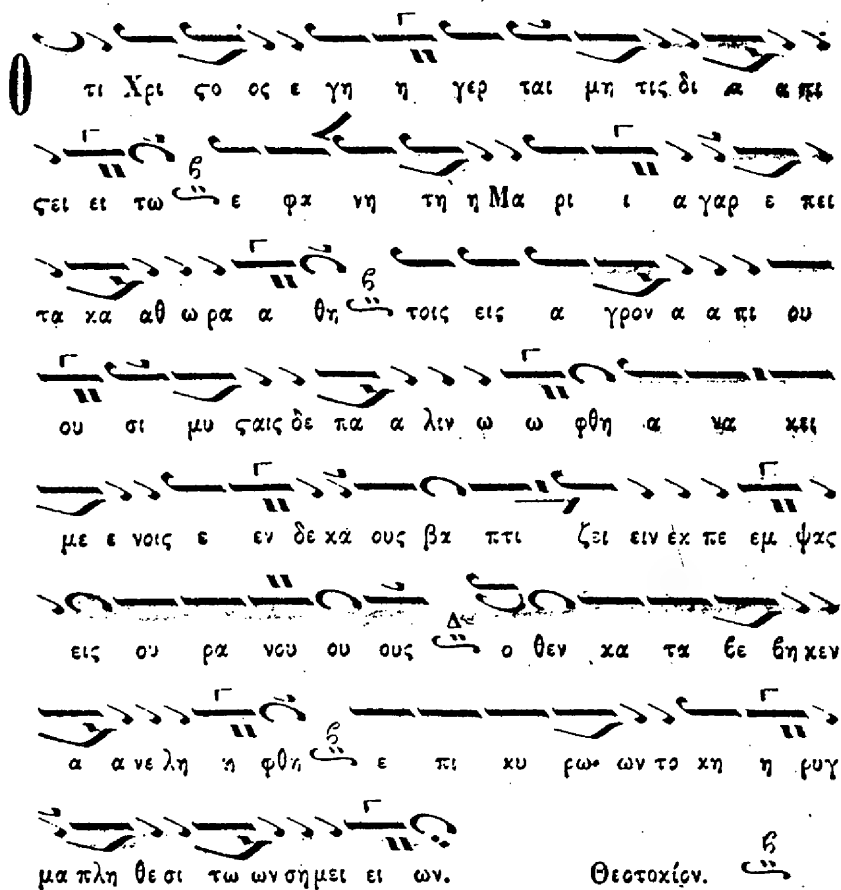 Ο τι Χρι ϛο ος ε γη η γερ ται μη τις δι α α πι
ϛει ει τω ε φα νη τη η Μα ρι ι α γαρ ε πει
τα κα αθ ω ρα α θη τοις εις α γρον α α πι ου
ου σι μυ ϛαις δε πα α λιν ω ω φθη α να κει
με ε νοις ε εν δε κα ους βα πτι ζει ειν εκ πε εμ ψας
εις ου ρα νου ου ους Δι ο θεν κα τα βε βη κεν
α α νε λη η φθη ε πι κυ ρω ων το κη η ρυγ
μα πλη θε σι τω ων ση μει ει ων. Θεοτοκίον.